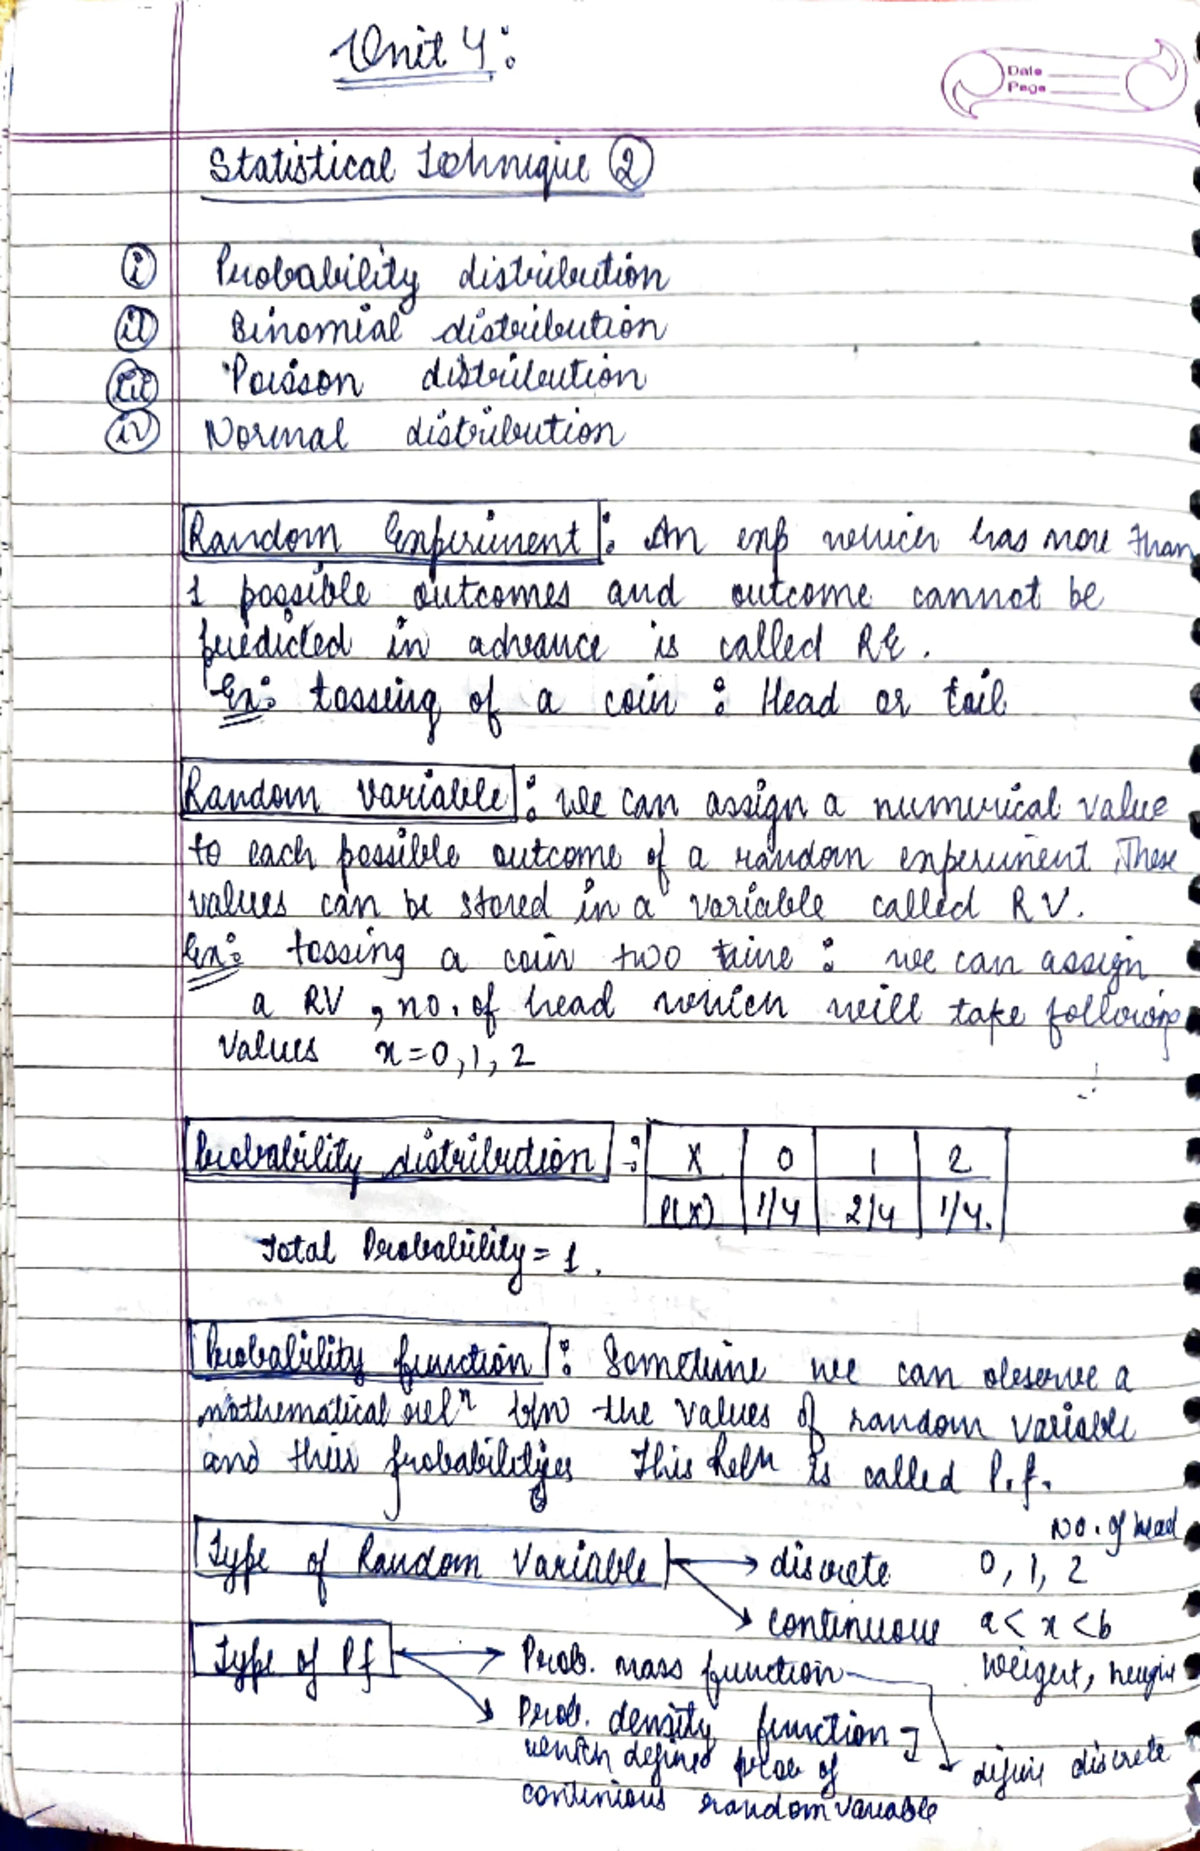 Unit 4:
Date
Page
Statistical Technique ②
i Probability distribution
ii Binomial distribution
iii Poisson distribution
iv Normal distribution
Random Experiment : An exp which has more than
1 possible outcomes and outcome cannot be
predicted in advance is called RE.
Ex: tossing of a coin : Head or tail
Random variable : we can assign a numerical value
to each possible outcome of a random experiment. These
values can be stored in a variable called RV.
Ex: tossing a coin two time : we can assign
a RV, no. of head which will take following
values x=0,1,2
Probability distribution : X 0 1 2
P(X) 1/4 2/4 1/4.
Total Probability = 1.
Probability function : Sometime we can observe a
mathematical relⁿ b/w the values of random variable
and their probabilities This relⁿ is called P.f.
No. of head
Type of Random Variable → discrete 0, 1, 2
→ continuous a < x < b
Type of Pf → Prob. mass function weight, height
→ Prob. density function
which defined prob of → define discrete
continious random variable